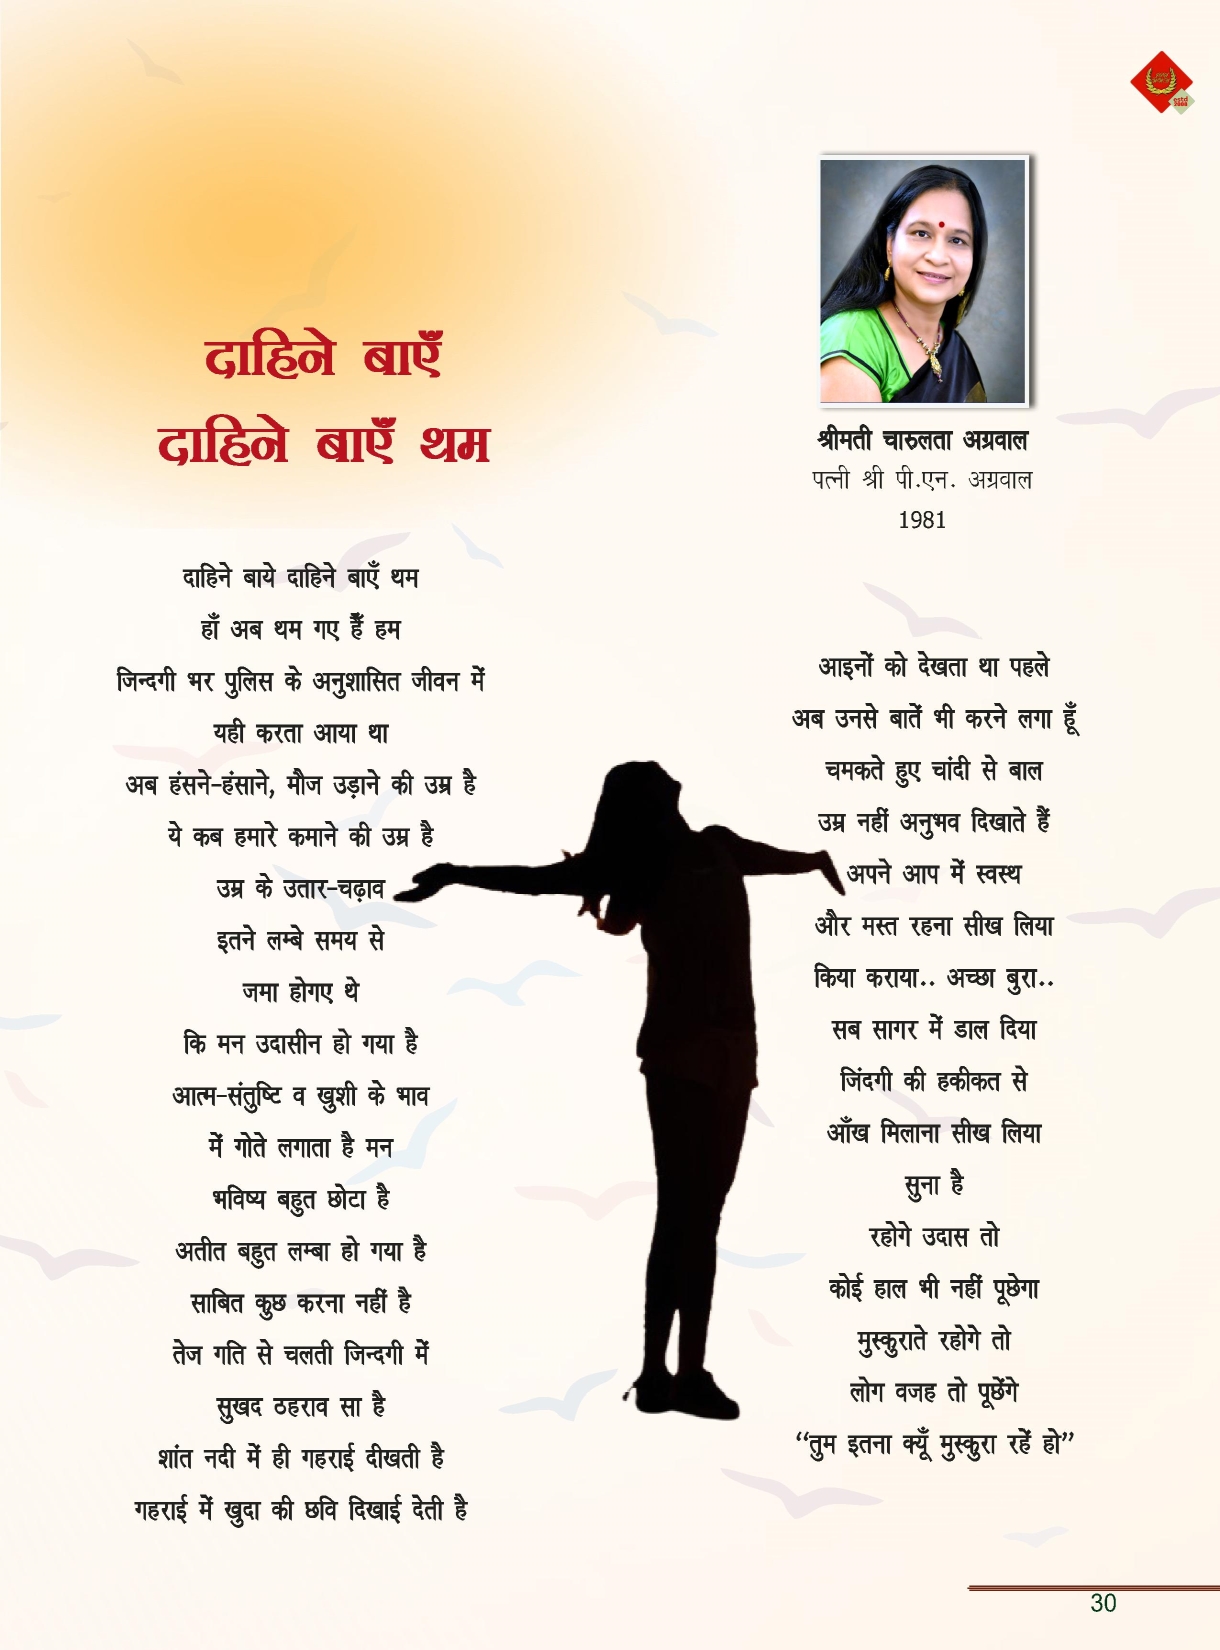 दाहिने बाएँ
दाहिने बाएँ थम
श्रीमती चारुलता अग्रवाल
पत्नी श्री पी.एन. अग्रवाल
1981
दाहिने बाये दाहिने बाएँ थम
हाँ अब थम गए हैं हम
जिन्दगी भर पुलिस के अनुशासित जीवन में
यही करता आया था
अब हंसने-हंसाने, मौज उड़ाने की उम्र है
ये कब हमारे कमाने की उम्र है
उम्र के उतार-चढ़ाव
इतने लम्बे समय से
जमा होगए थे
कि मन उदासीन हो गया है
आत्म-संतुष्टि व खुशी के भाव
में गोते लगाता है मन
भविष्य बहुत छोटा है
अतीत बहुत लम्बा हो गया है
साबित कुछ करना नहीं है
तेज गति से चलती जिन्दगी में
सुखद ठहराव सा है
शांत नदी में ही गहराई दीखती है
गहराई में खुदा की छवि दिखाई देती है
आइनों को देखता था पहले
अब उनसे बातें भी करने लगा हूँ
चमकते हुए चांदी से बाल
उम्र नहीं अनुभव दिखाते हैं
अपने आप में स्वस्थ
और मस्त रहना सीख लिया
किया कराया.. अच्छा बुरा..
सब सागर में डाल दिया
जिंदगी की हकीकत से
आँख मिलाना सीख लिया
सुना है
रहोगे उदास तो
कोई हाल भी नहीं पूछेगा
मुस्कुराते रहोगे तो
लोग वजह तो पूछेंगे
“तुम इतना क्यूँ मुस्कुरा रहें हो”
30